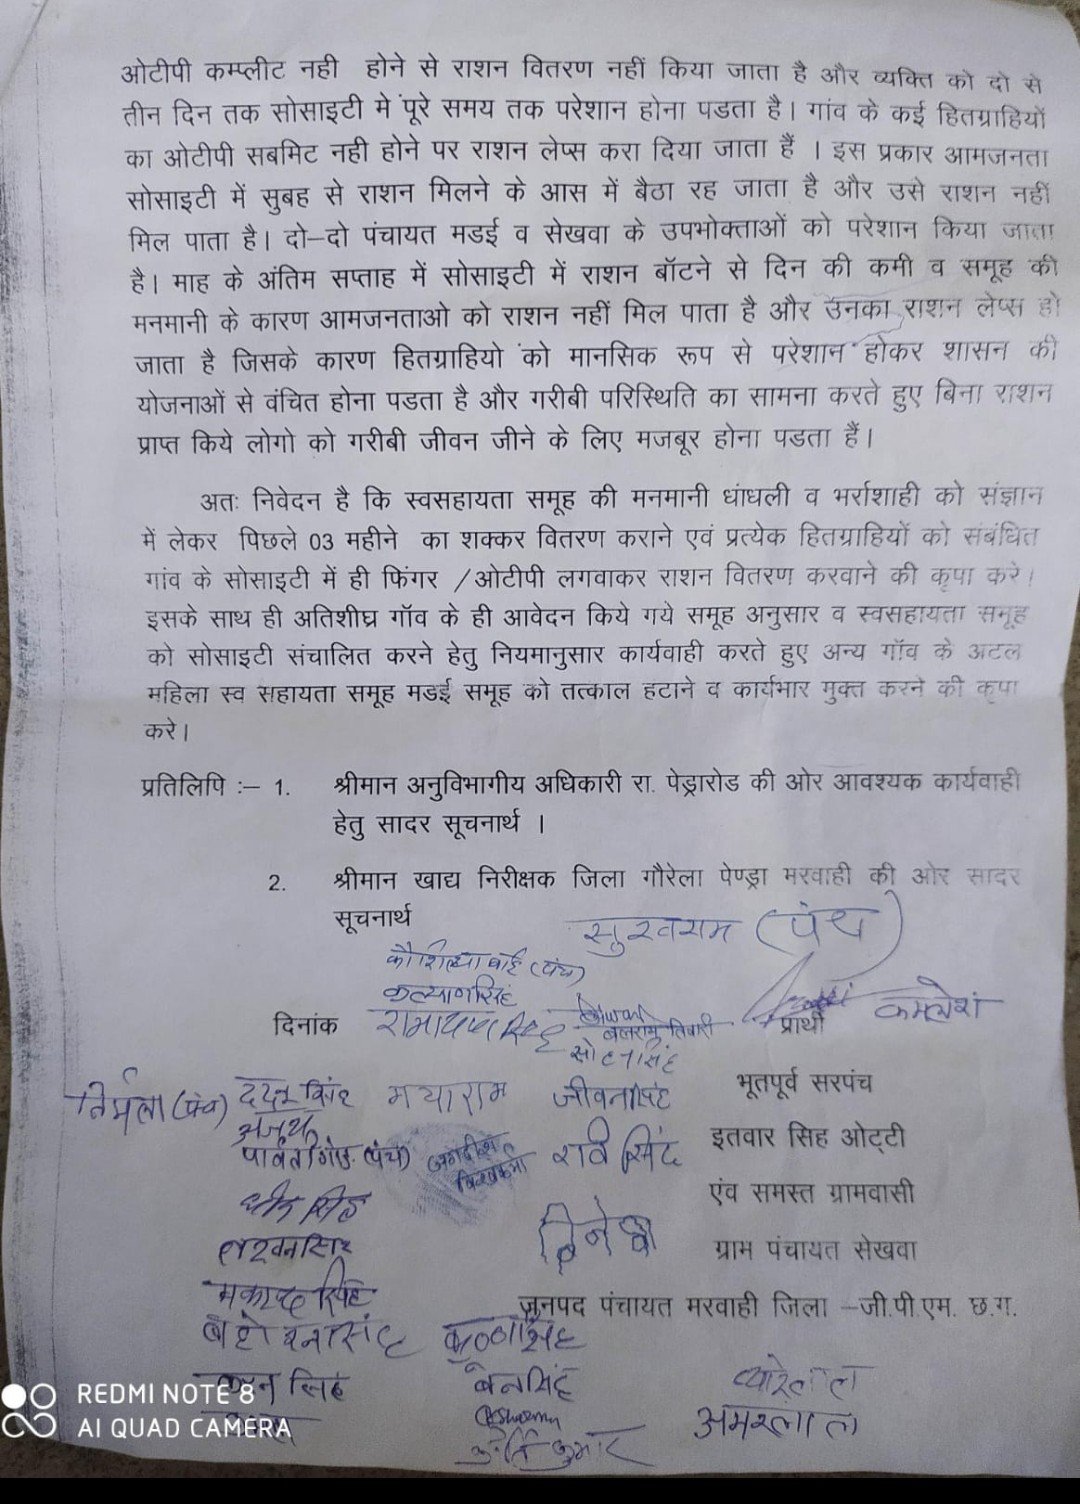 ओटीपी कम्प्लीट नही होने से राशन वितरण नहीं किया जाता है और व्यक्ति को दो से
तीन दिन तक सोसाइटी मे पूरे समय तक परेशान होना पडता है। गांव के कई हितग्राहियों
का ओटीपी सबमिट नही होने पर राशन लेप्स करा दिया जाता हैं । इस प्रकार आमजनता
सोसाइटी में सुबह से राशन मिलने के आस में बैठा रह जाता है और उसे राशन नहीं
मिल पाता है। दो–दो पंचायत मडई व सेखवा के उपभोक्ताओं को परेशान किया जाता
है। माह के अंतिम सप्ताह में सोसाइटी में राशन बॉटने से दिन की कमी व समूह की
मनमानी के कारण आमजनताओ को राशन नहीं मिल पाता है और उनका राशन लेप्स हो
जाता है जिसके कारण हितग्राहियो को मानसिक रूप से परेशान होकर शासन की
योजनाओं से वंचित होना पडता है और गरीबी परिस्थिति का सामना करते हुए बिना राशन
प्राप्त किये लोगो को गरीबी जीवन जीने के लिए मजबूर होना पडता हैं।
अतः निवेदन है कि स्वसहायता समूह की मनमानी धांधली व भर्राशाही को संज्ञान
में लेकर पिछले 03 महीने का शक्कर वितरण कराने एवं प्रत्येक हितग्राहियों को संबंधित
गांव के सोसाइटी में ही फिंगर /ओटीपी लगवाकर राशन वितरण करवाने की कृपा करे।
इसके साथ ही अतिशीघ्र गॉव के ही आवेदन किये गये समूह अनुसार व स्वसहायता समूह
को सोसाइटी संचालित करने हेतु नियमानुसार कार्यवाही करते हुए अन्य गॉव के अटल
महिला स्व सहायता समूह मडई समूह को तत्काल हटाने व कार्यभार मुक्त करने की कृपा
करे।
प्रतिलिपि :– 1. श्रीमान अनुविभागीय अधिकारी रा. पेड्रारोड की ओर आवश्यक कार्यवाही
हेतु सादर सूचनार्थ ।
2. श्रीमान खाद्य निरीक्षक जिला गौरेला पेण्ड्रा मरवाही की ओर सादर
सूचनार्थ
सुखराम (पंच)
कौशिल्या बाई (पंच)
कल्याणसिंह
दिनांक रामायण सिंह बलराम तिवारी प्रार्थी कमलेश
सोहनसिंह
निर्मला (पंच) मयाराम जीवनसिंह भूतपूर्व सरपंच
(पंच) जगदीश विश्वकर्मा रवि सिंह इतवार सिह ओट्टी
एंव समस्त ग्रामवासी
लखनसिंह दिनेश ग्राम पंचायत सेखवा
जनपद पंचायत मरवाही जिला –जी.पी.एम. छ.ग.
सिंह
अमरलाल
कुमार
REDMI NOTE 8
AI QUAD CAMERA